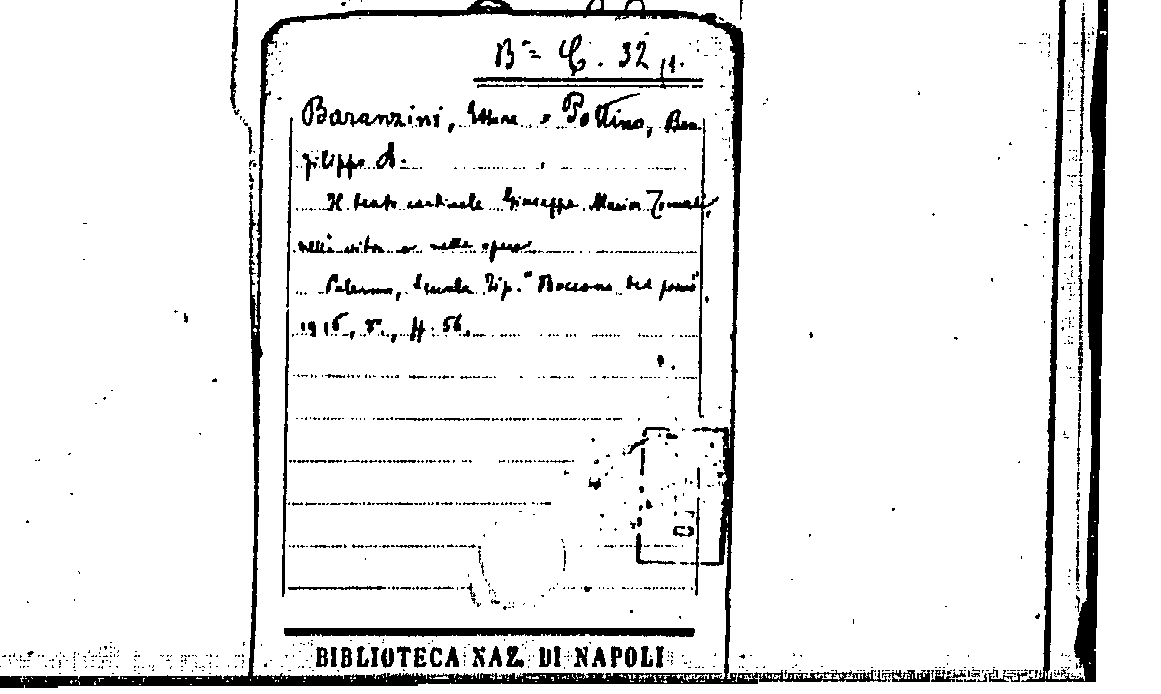 Bª C. 32 /1.
Baranzini, Ettore e Pottino, Bar.
Filippo A.
Il beato cardinale Giuseppe Maria Tomasi
nella vita e nelle opere
Palermo, Scuola Tip. "Boccone del povero
1916, 8º, pp. 56.
BIBLIOTECA NAZ. DI NAPOLI